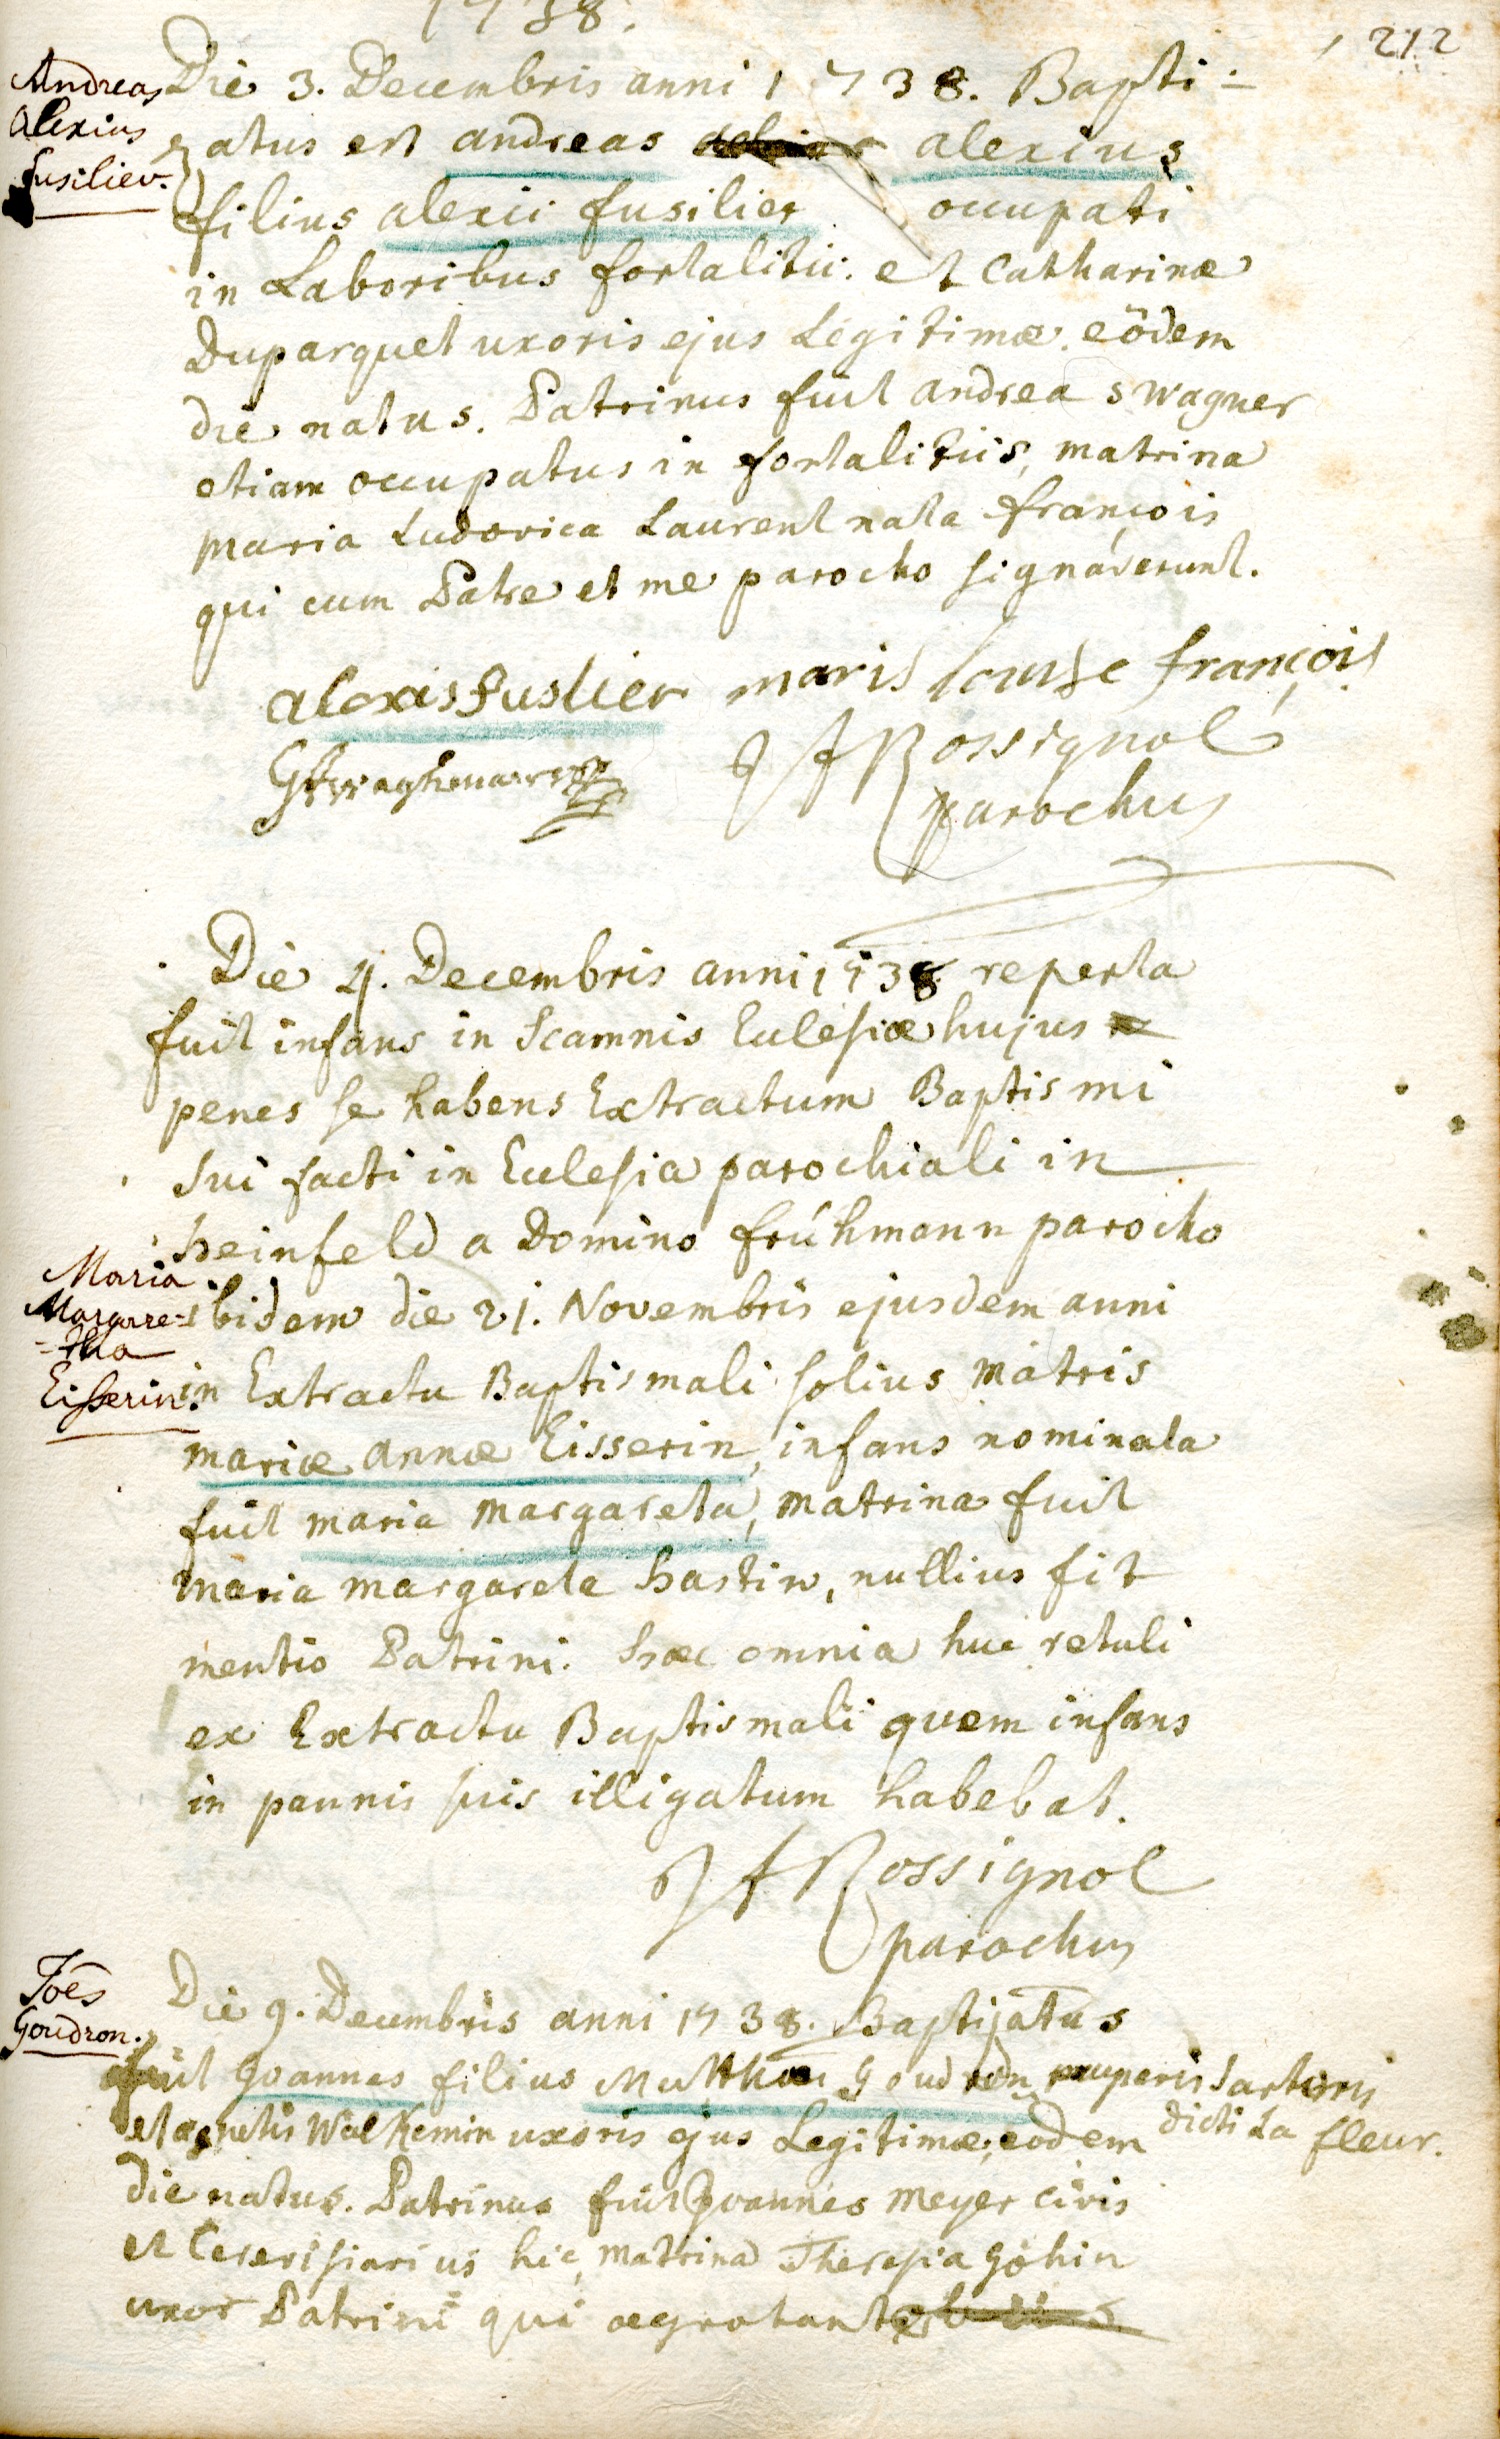 1738.
212
Andreas
Alexius
fusilier.
Die 3. Decembris anni 1738. Bapti-
zatus est andreas alexius
filius alexii fusilier occupati
in Laboribus fortalitii. et Catharinæ
Duparquet uxoris ejus Legitimæ. eödem
die natus. Patrinus fuit andreas wagner
etiam occupatus in fortalitiis, matrina
maria Ludovica Laurent nata françois
qui cum Patre et me parocho signáverunt.
alexis fuslier maris louise françois
J f Rossignol
parochus
Die 4. Decembris anni 1738 reperta
fuit infans in Scamnis Eclesiæ hujus
penes se habens Extractum Baptismi
sui facti in Eclesia parochiali in
heinfeld a Domino frúhmann parocho
Maria
Margare-
-tha
Eisserin.
ibidem die 21. Novembris ejusdem anni
in Extractu Baptismali solius matris
mariæ annæ Eisserin, infans nominata
fuit maria margareta, matrina fuit
maria margareta hastin, nullius fit
mentio Patrini. hæc omnia huc retuli
ex Extractu Baptismali quem infans
in pannis suis illigatum habebat.
J f Rossignol
parochus
Joes
Goudron.
Die 9. Decembris anni 1738. Baptizatus
fuit Joannes filius Matthæi Goudron pauperis sartoris
dicti La fleur.
et agnetis Walkemin uxoris ejus Legitimæ, eodem
die natus. Patrinus fuit Joannes meyer civis
et Cerevisiarius hic, matrina Theresia Göhin
uxor Patrini qui ægrotant